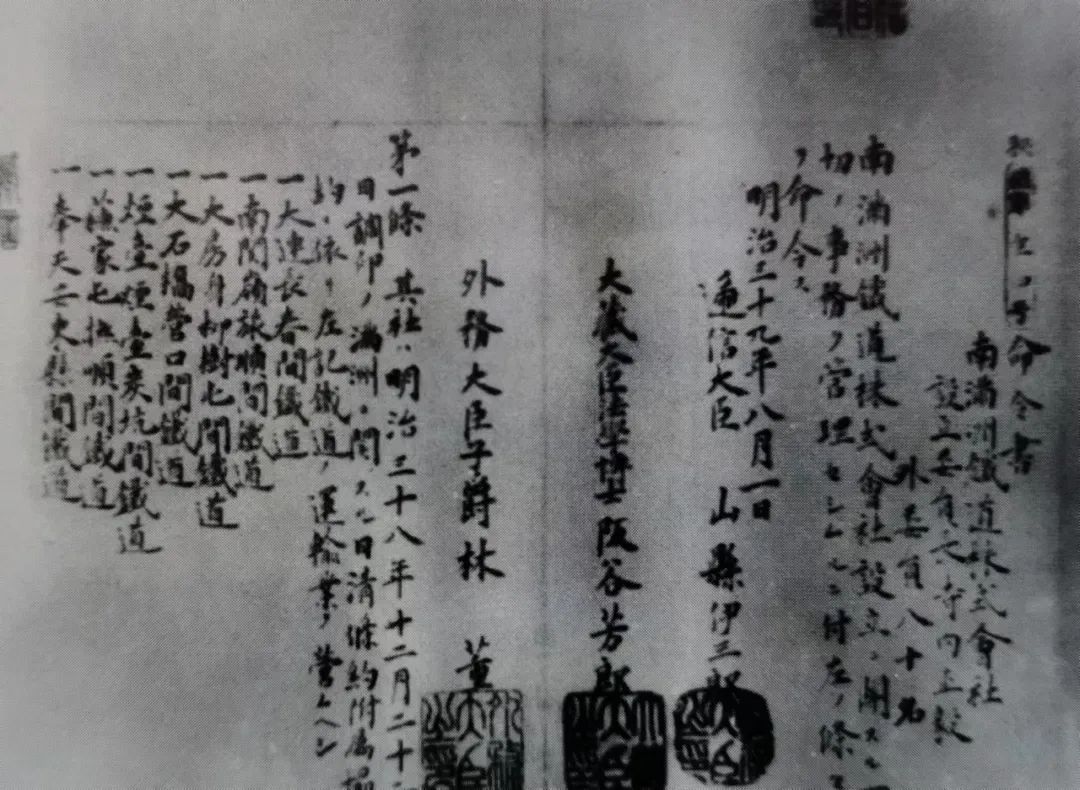 命令書
南滿洲鐵道株式會社
設立委員長寺内正毅
外委員八十名
南滿洲鐵道株式會社設立ニ関スル一
切ノ事務ヲ管理セシムルニ付左ノ條
ヲ命令ス
明治三十九年八月一日
逓信大臣 山縣伊三郎
大藏大臣法學博士阪谷芳郎
外務大臣子爵林 董
第一條 其社ハ明治三十八年十二月二十二
日調印ノ滿洲ニ関スル日清條約附屬協
約ニ依リ左記鐵道ノ運輸業ヲ營ムヘシ
一大連長春間鐵道
一南関嶺旅順間鐵道
一大房身柳樹屯間鐵道
一大石橋營口間鐵道
一煙臺煙臺炭坑間鐵道
一蘇家屯撫順間鐵道
一奉天安東縣間鐵道